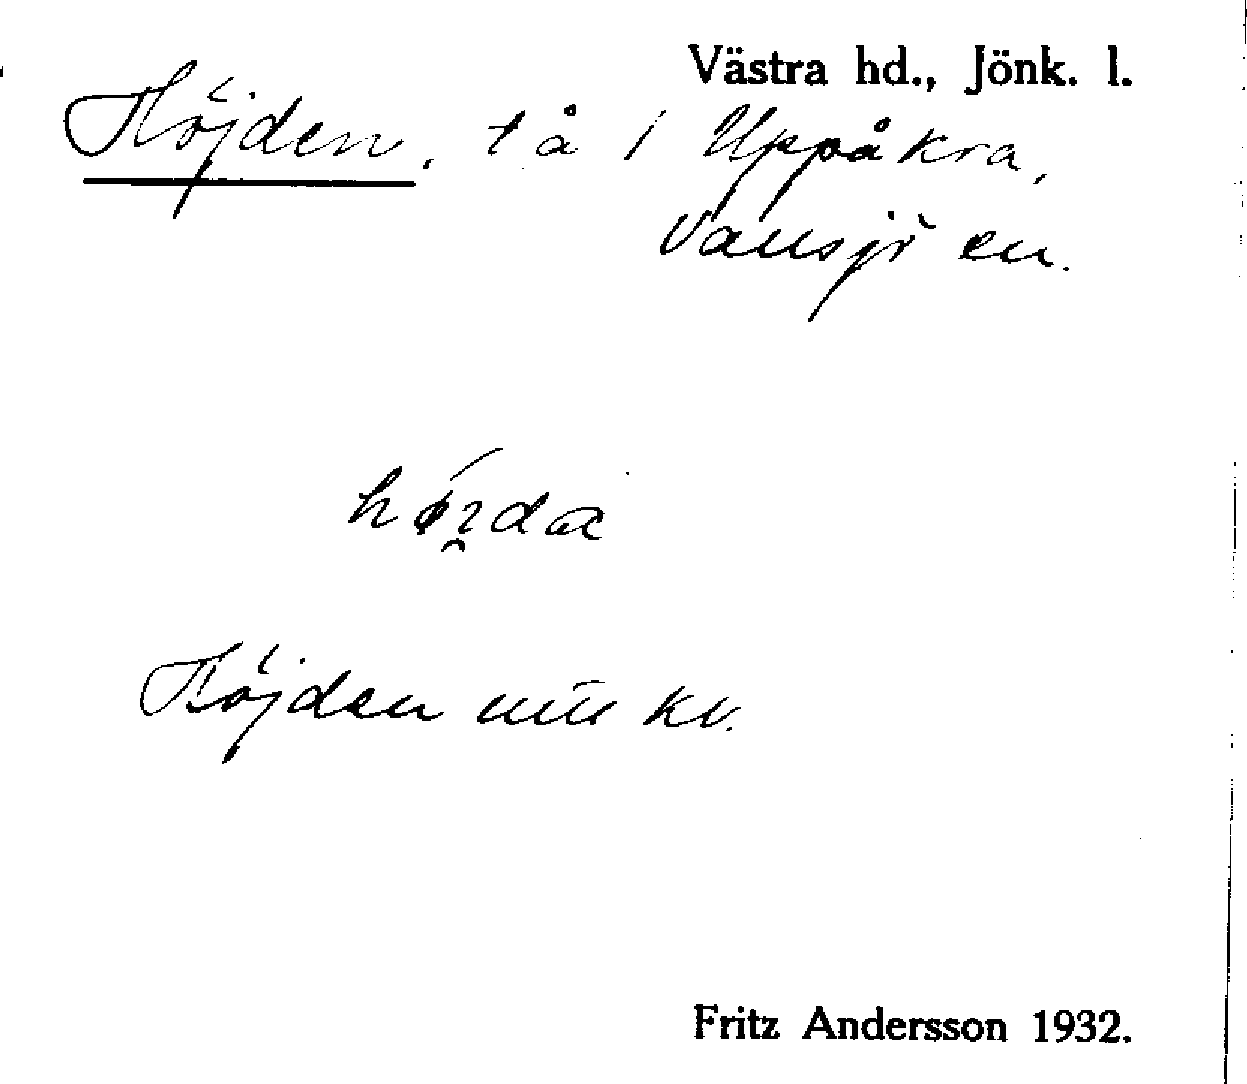 Västra hd., Jönk. l.
Höjden, tå i Uppåkra,
Vansjö en.
Höjden kv.
Fritz Andersson 1932.